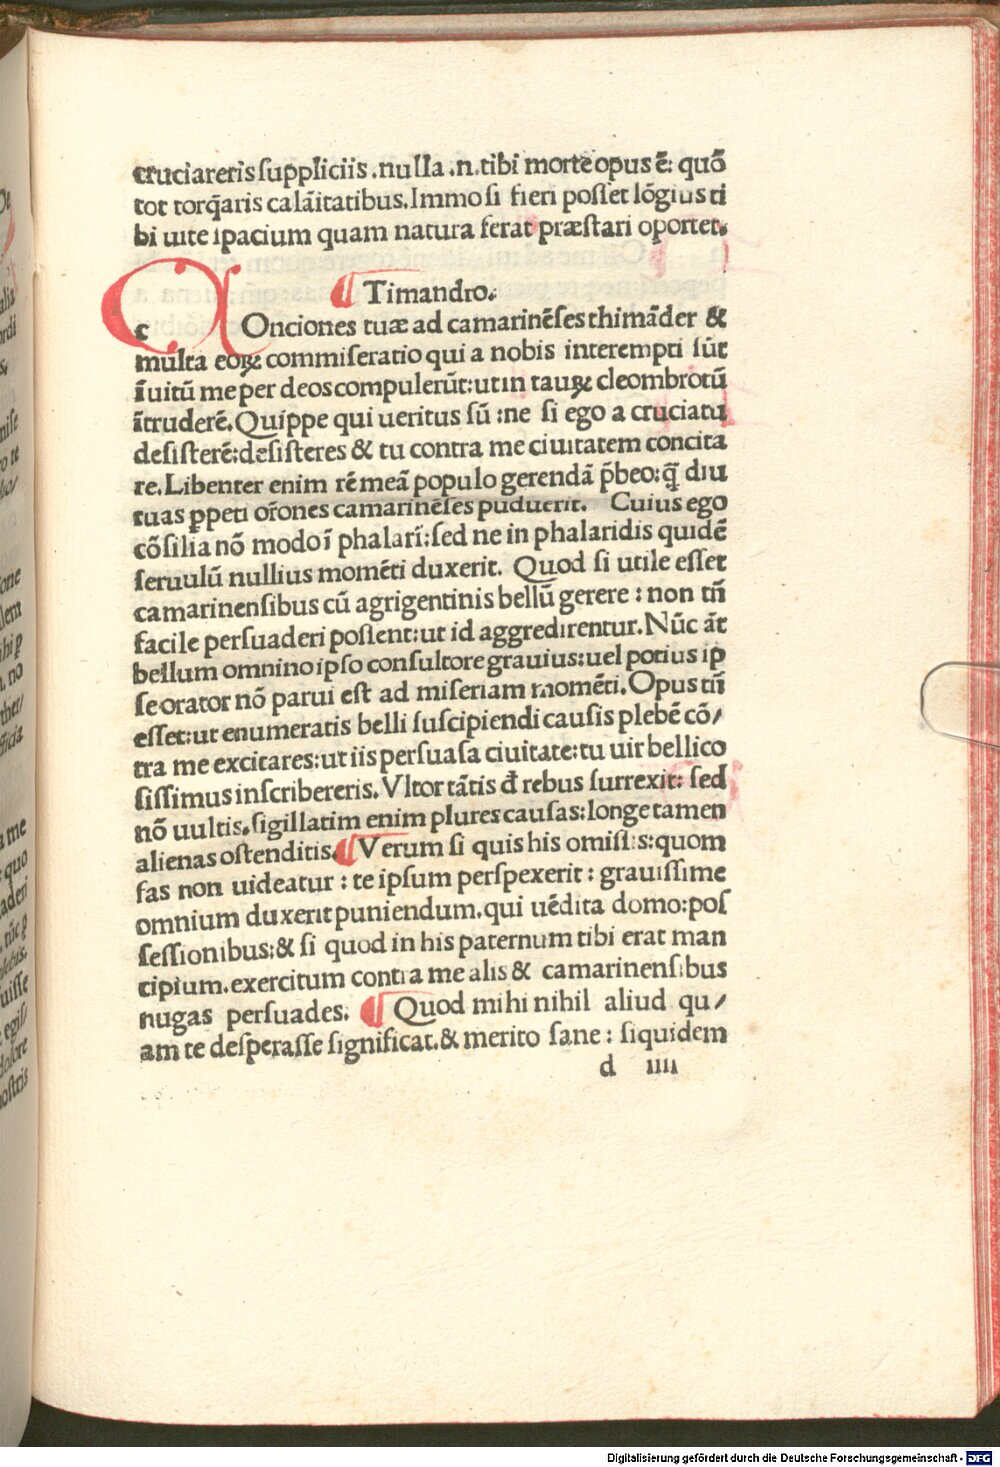 cruciareris suppliciis .nulla .n. tibi morte opus ē: quō
tot torq̄aris calāitatibus. Immo si fieri posset lōgius ti
bi uite ipacium quam natura ferat præstari oportet.
¶ Timandro.
c Onciones tuæ ad camarinēses thimāder &
multa eoꝝ commiseratio qui a nobis interempti sūt
īuitū me per deos compulerūt: ut in tauꝝ cleombrotū
ītruderē. Quippe qui ueritus sū : ne si ego a cruciatu
desisterē: desisteres & tu contra me ciuitatem concita
re. Libenter enim rē meā populo gerendā p̄beo: q̄ diu
tuas ꝑpeti or̄ones camarinēses puduerit. Cuius ego
cōsilia nō modo ī phalari: sed ne in phalaridis quidē
seruulū nullius momēti duxerit. Quod si utile esset
camarinensibus cū agrigentinis bellū gerere : non tn̄
facile persuaderi possent: ut id aggredirentur. Nūc āt
bellum omnino ipso consultore grauius: uel potius ip
se orator nō parui est ad miseriam momēti. Opus tn̄
esset: ut enumeratis belli suscipiendi causis plebē cō/
tra me excitares: ut iis persuasa ciuitate: tu uir bellico
sissimus inscribereris. Vltor tātis đ rebus surrexit: sed
nō uultis. sigillatim enim plures causas: longe tamen
alienas ostenditis. ¶ Verum si quis his omissis: quom
fas non uideatur : te ipsum perspexerit : grauissime
omnium duxerit puniendum. qui uēdita domo: pos
sessionibus: & si quod in his paternum tibi erat man
cipium. exercitum contra me alis & camarinensibus
nugas persuades. ¶ Quod mihi nihil aliud qu/
am te desperasse significat. & merito sane : siquidem
d iiii
Digitalisierung gefördert durch die Deutsche Forschungsgemeinschaft - DFG